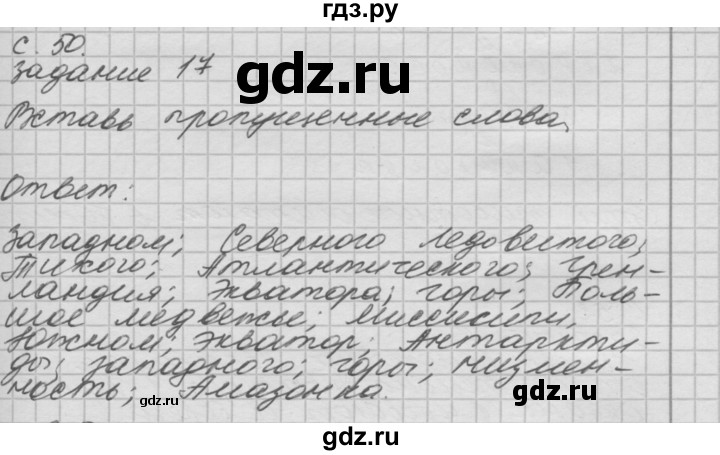 гдз.ру
с. 50.
задание 17
gdz.ru
Вставь пропущенные слова,
Ответ:
Западном; Северного Ледовитого;
Тихого; Атлантического; Грен-
ландия; Экватора; горы; Боль-
шое медвежье; Миссисипи.
Южном; экватор; Антаркти-
ды; западного; горы; низмен-
ность; Амазонка.
gdz.ru
gdz.ru